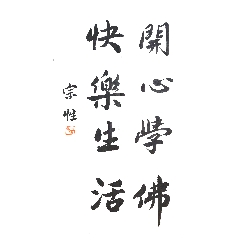 開心學佛
快樂生活
宗性